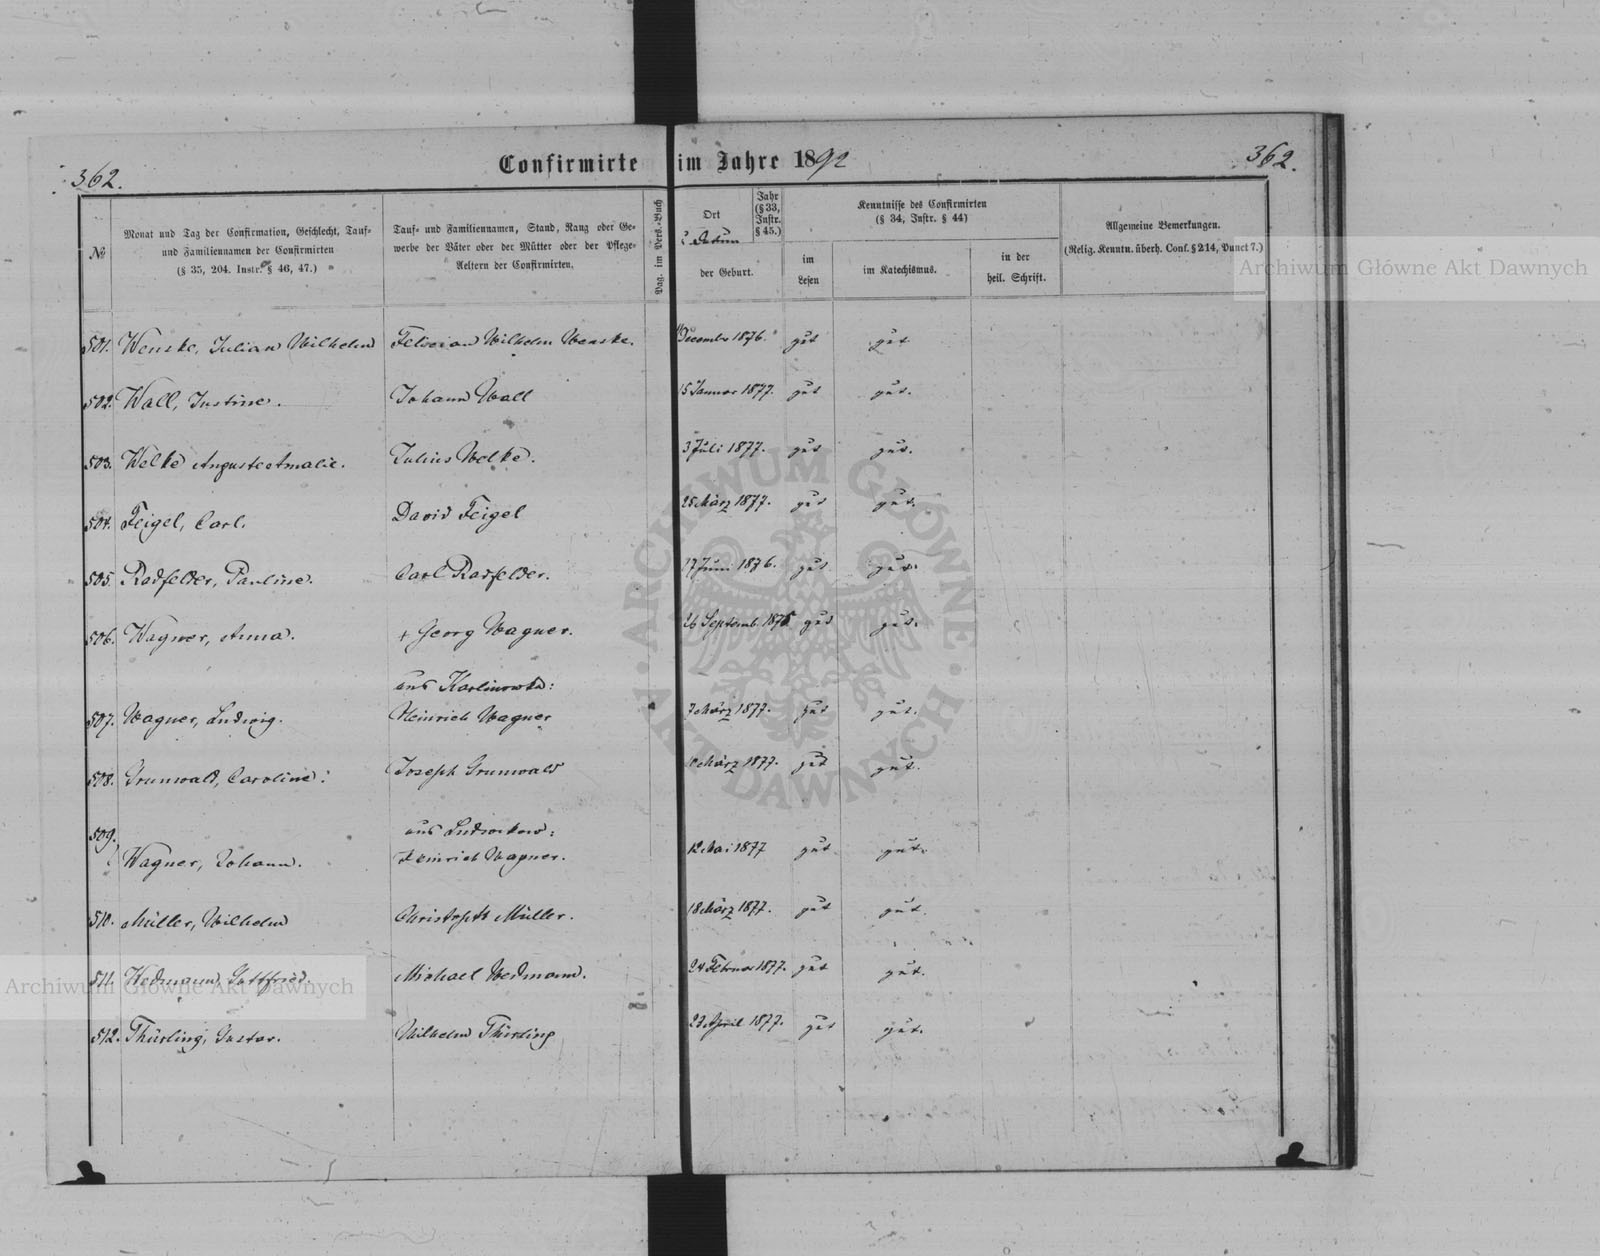 362.
Confirmirte im Jahre 1892
362.
№
Monat und Tag der Confirmation, Geschlecht, Tauf-
und Familiennamen der Confirmirten
(§ 35, 204. Instr. § 46, 47.)
Tauf- und Familiennamen, Stand, Rang oder Ge-
werbe der Väter oder der Mütter oder der Pflege-
Aeltern der Confirmirten.
Pag. im Pers.-Buch
Ort
Datum
der Geburt.
Jahr
(§ 33,
Instr.
§ 45.)
Kenntnisse des Confirmirten
(§ 34, Instr. § 44)
im
Lesen
im Katechismus.
in der
heil. Schrift.
Allgemeine Bemerkungen.
(Relig. Kenntn. überh. Conf. § 214, Punct 7.)
Archiwum Główne Akt Dawnych
501. Wenske, Julian Wilhelm Wilhelm Wenske. December 1876. gut gut
502. Wall, Justine. Johann Wall 15 Januar 1877. gut gut.
503. Welke Auguste Amalie. Julius Welke. 3 Juli 1877. gut gut.
504. Feigel, Carl. David Feigel 25 März 1877. gut gut.
505. Radfelder, Pauline. Carl Radfelder. 17 Juni 1876. gut gut.
506. Wagner, Anna. + Georg Wagner. 26 Septemb. 1875 gut gut.
aus Karlinowka:
507. Wagner, Ludwig. Heinrich Wagner 7 März 1877. gut gut.
508. Grunwald, Caroline: Joseph Grunwald März 1877. gut gut.
aus
509. Wagner, Johann. Heinrich Wagner. 12 Mai 1877 gut gut.
510. Müller, Wilhelm Christoph Müller. 18 März 1877. gut gut.
511. Wedmann, Gottfried. Michael Wedmann. 24 Februar 1877. gut gut.
512. Thürling, Gustav. Wilhelm Thürling 23 April 1877. gut gut.
Archiwum Główne Akt Dawnych
ARCHIWUM GŁÓWNE AKT DAWNYCH